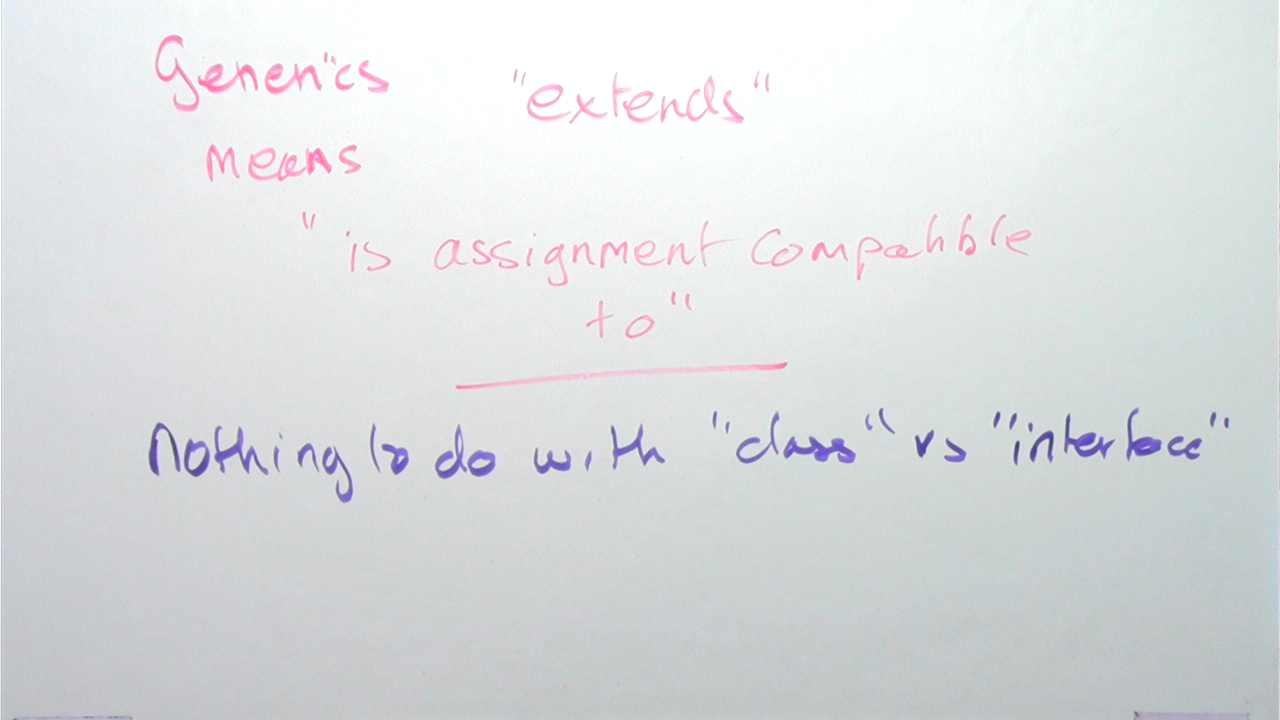 Generics "extends"
means
"is assignment compatible
to"
nothing to do with "class" vs "interface"